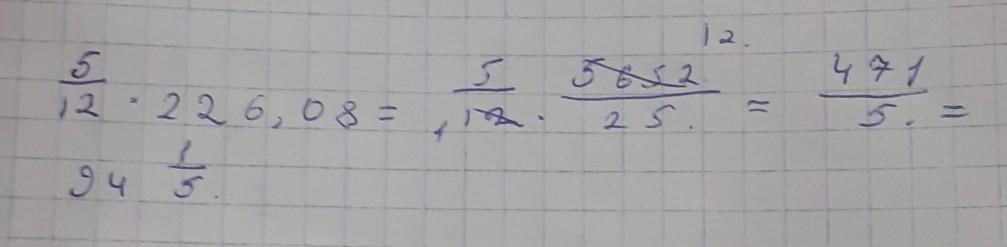 12.
5/12 · 226,08 = 5/12 · 5652/25. = 471/5. =
94 1/5.